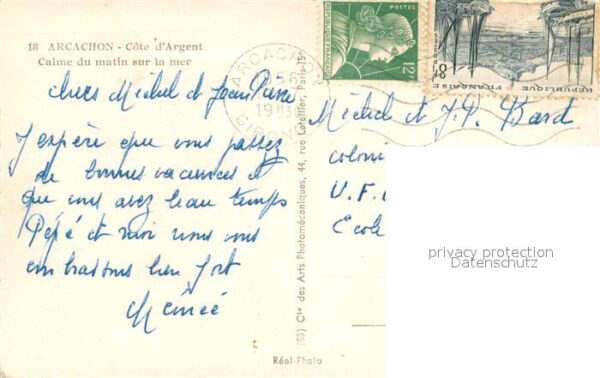 18 ARCACHON - Côte d'Argent
Calme du matin sur la mer
chers Michel et Jean Pierre
J'espère que vous passez
de bonnes vacances et
que vous avez beau temps
Pépé et moi nous vous
embrassons bien fort
Mémée
(55) Cie des Arts Photomécaniques, 44, rue Letellier, Paris-15
Réal-Photo
ARCACHON
1956
GIRONDE
POSTES
12F
8F
REPUBLIQUE FRANÇAISE
Michel et J. P. Bard
coloni
U.F.
Ecole
privacy protection
Datenschutz